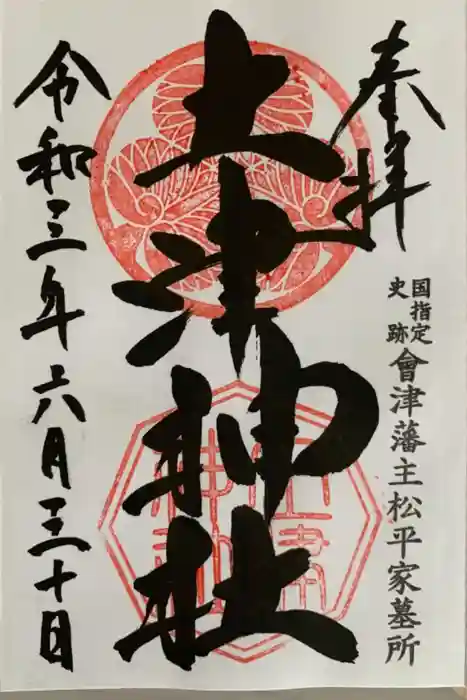 奉拝
国指定史跡 會津藩主松平家墓所
土津神社
土津神社
令和三年六月三十日